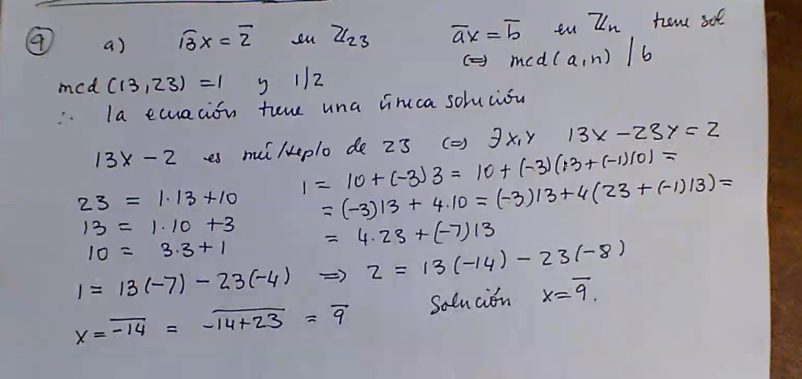 ④ a) 1̅3̅x = 2̅ en ℤ₂₃ a̅x = b̅ en ℤn tiene sol
⇔ mcd(a,n) | b
mcd(13,23) = 1 y 1|2
∴ la ecuación tiene una única solución
13x - 2 es múltiplo de 23 ⇔ ∃x,y 13x - 23y = 2
23 = 1·13 + 10
13 = 1·10 + 3
10 = 3·3 + 1
1 = 10 + (-3)3 = 10 + (-3)(13 + (-1)10) =
= (-3)13 + 4·10 = (-3)13 + 4(23 + (-1)13) =
= 4·23 + (-7)13
1 = 13(-7) - 23(-4) ⇒ 2 = 13(-14) - 23(-8)
x = -̅1̅4̅ = -̅1̅4̅+̅2̅3̅ = 9̅ Solución x = 9̅.